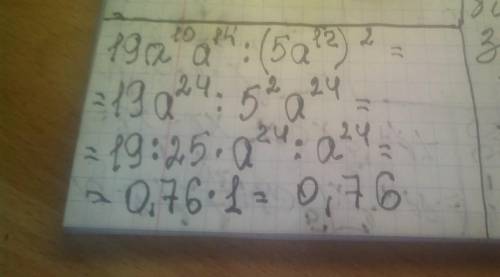 19a¹⁰a¹⁴ : (5a¹²)² =
= 19a²⁴ : 5²a²⁴ =
= 19 : 25 · a²⁴ : a²⁴ =
= 0,76 · 1 = 0,76